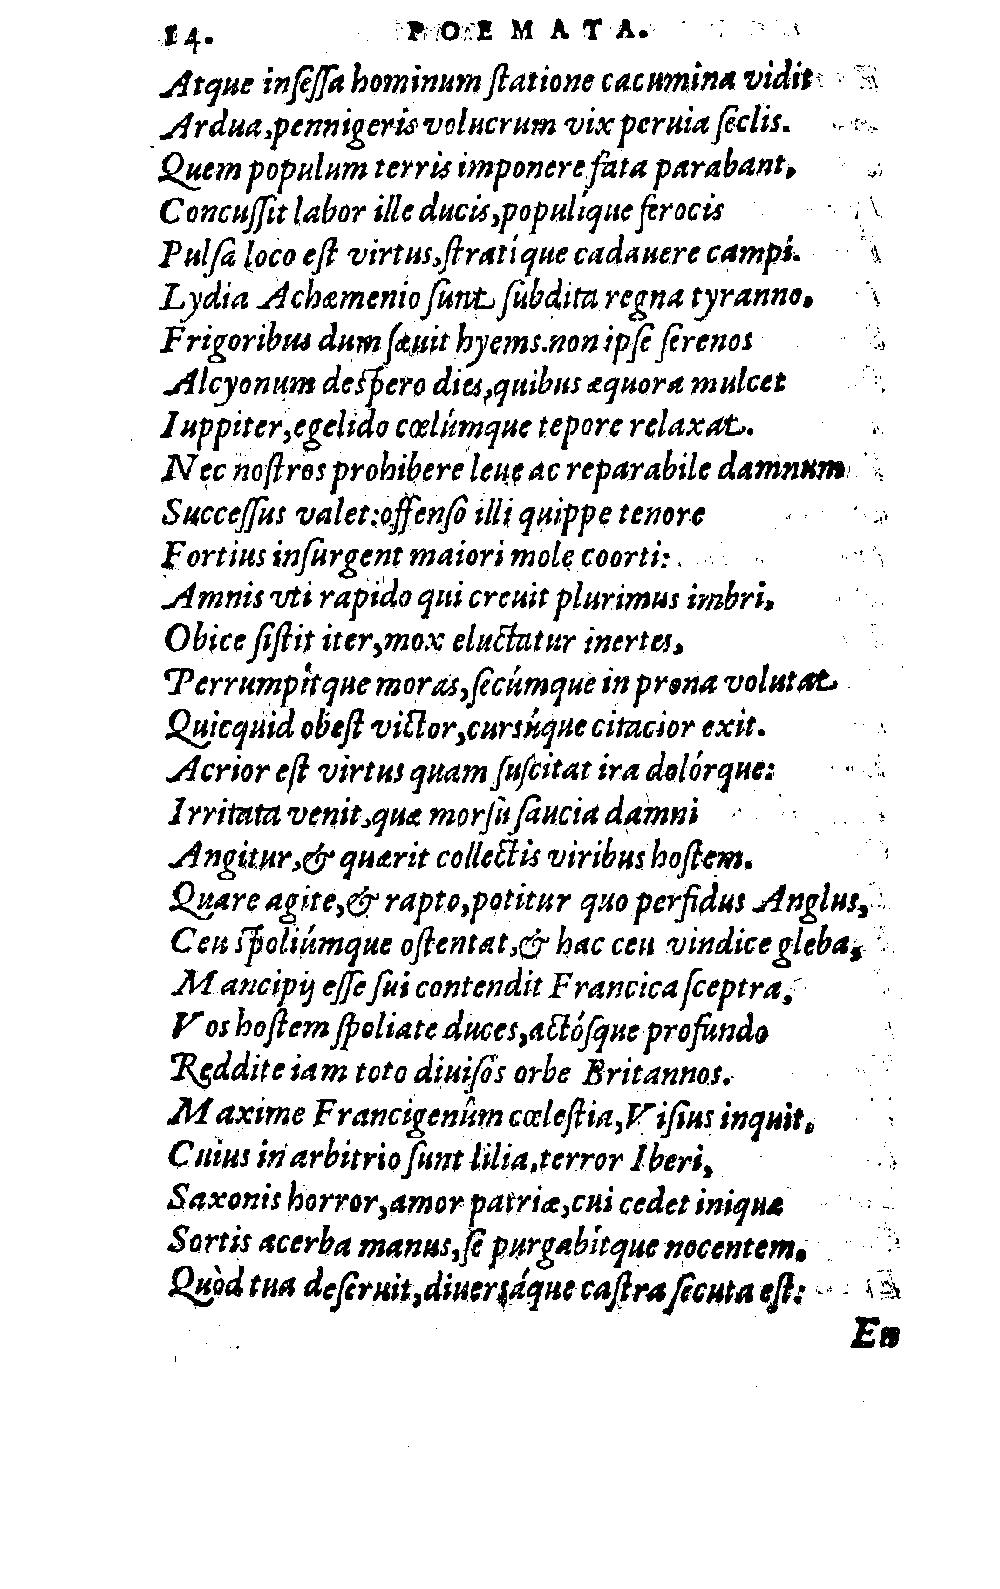 14. POEMATA.
Atque inſeſſa hominum ſtatione cacumina vidit
Ardua, pennigeris volucrum vix peruia ſeclis.
Quem populum terris imponere fata parabant,
Concuſſit labor ille ducis, populíque ferocis
Pulſa loco eſt virtus, ſtratíque cadauere campi.
Lydia Achæmenio ſunt ſubdita regna tyranno,
Frigoribus dum ſæuit hyems. non ipſe ſerenos
Alcyonum deſpero dies, quibus æquora mulcet
Iuppiter, egelido cœlúmque tepore relaxat.
Nec noſtros prohibere leue ac reparabile damnum
Succeſſus valet: offenſo illi quippe tenore
Fortius inſurgent maiori mole coorti:
Amnis vti rapido qui creuit plurimus imbri,
Obice ſiſtit iter, mox eluctatur inertes,
Perrumpítque moras, ſecúmque in prona volutat
Quicquid obeſt victor, cursúque citacior exit.
Acrior eſt virtus quam ſuſcitat ira dolórque:
Irritata venit, quæ morſu ſaucia damni
Angitur, & quærit collectis viribus hoſtem.
Quare agite, & rapto, potitur quo perfidus Anglus,
Ceu ſpoliúmque oſtentat, & hac ceu vindice gleba,
Mancipij eſſe ſui contendit Francica ſceptra,
Vos hoſtem ſpoliate duces, actóſque profundo
Reddite iam toto diuiſos orbe Britannos.
Maxime Francigenûm cœleſtia, Viſius inquit,
Cuius in arbitrio ſunt lilia, terror Iberi,
Saxonis horror, amor patriæ, cui cedet iniquæ
Sortis acerba manus, ſe purgabítque nocentem,
Quòd tua deſeruit, diuersáque caſtra ſecuta eſt:
En